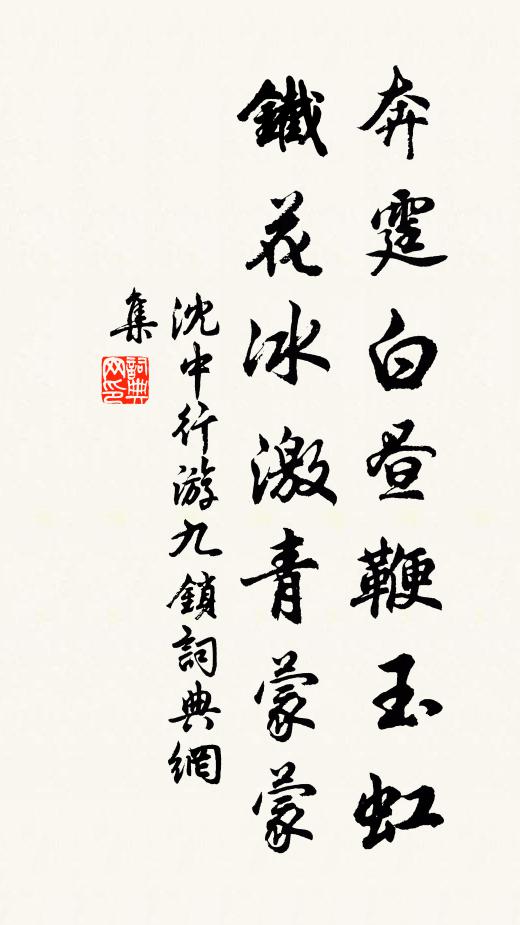 奔霆白昼鞭玉虹
鐵花冰激青蒙蒙
沈中行游九鎖詞典網
集
詞典
网印